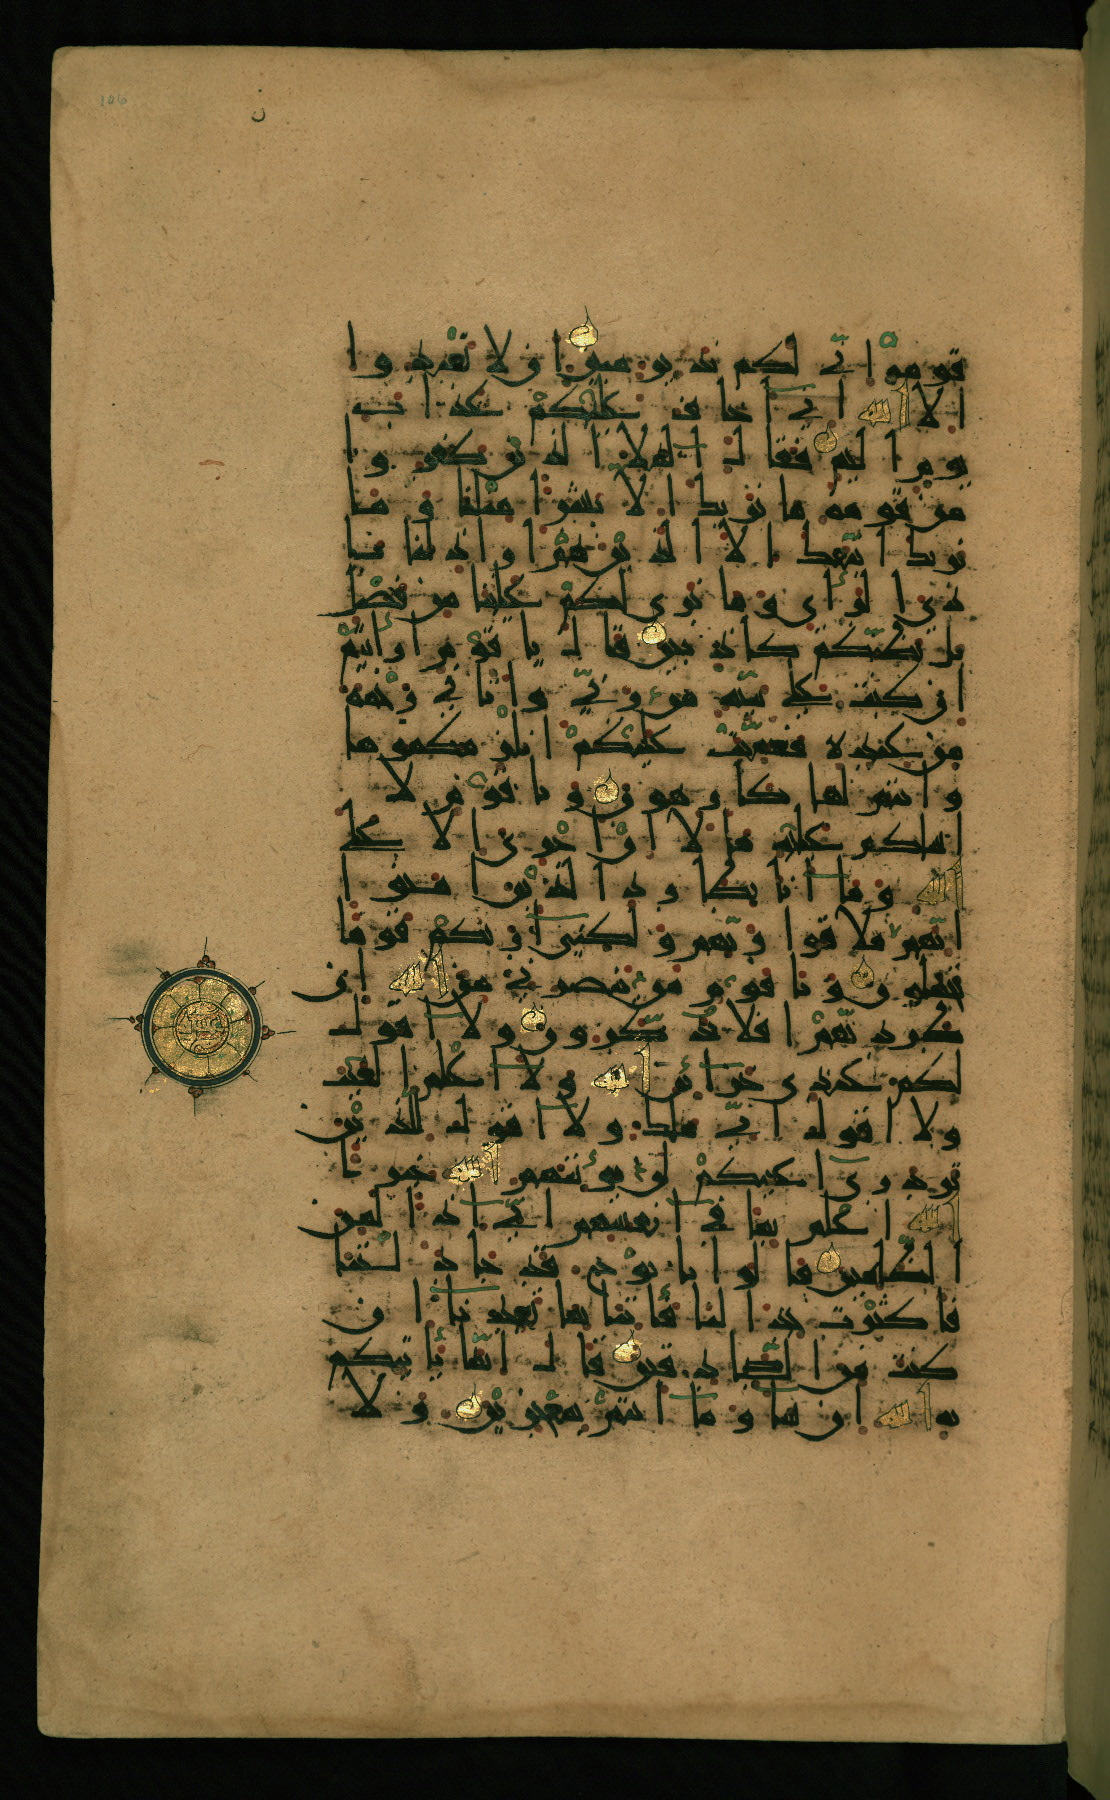 106
قومه اني لكم نذير مبين ان لا تعبدوا
الا الله اني اخاف عليكم عذاب
يوم اليم فقال الملا الذين كفروا
من قومه ما نريك الا بشرا مثلنا وما
نريك اتبعك الا الذين هم اراذلنا با
دي الراي وما نرى لكم علينا من فضل
بل نظنكم كاذبين قال يا قوم ارايتم
ان كنت على بينة من ربي واتاني رحمة
من عنده فعميت عليكم انلزمكموها
وانتم لها كارهون ويا قوم لا
اسلكم عليه مالا ان اجري الا على
الله وما انا بطارد الذين امنوا
انهم ملاقوا ربهم ولكني اريكم قوما
تجهلون ويا قوم من ينصرني من الله ان
طردتهم افلا تذكرون ولا اقول
لكم عندي خزائن الله ولا اعلم الغيب
ولا اقول اني ملك ولا اقول للذين
تزدري اعينكم لن يؤتيهم الله خيرا
الله اعلم بما في انفسهم اني اذا لمن
الظالمين قالوا يا نوح قد جادلتنا
فاكثرت جدالنا فاتنا بما تعدنا ان
كنت من الصادقين قال انما ياتيكم
به الله ان شا وما انتم بمعجزين ولا